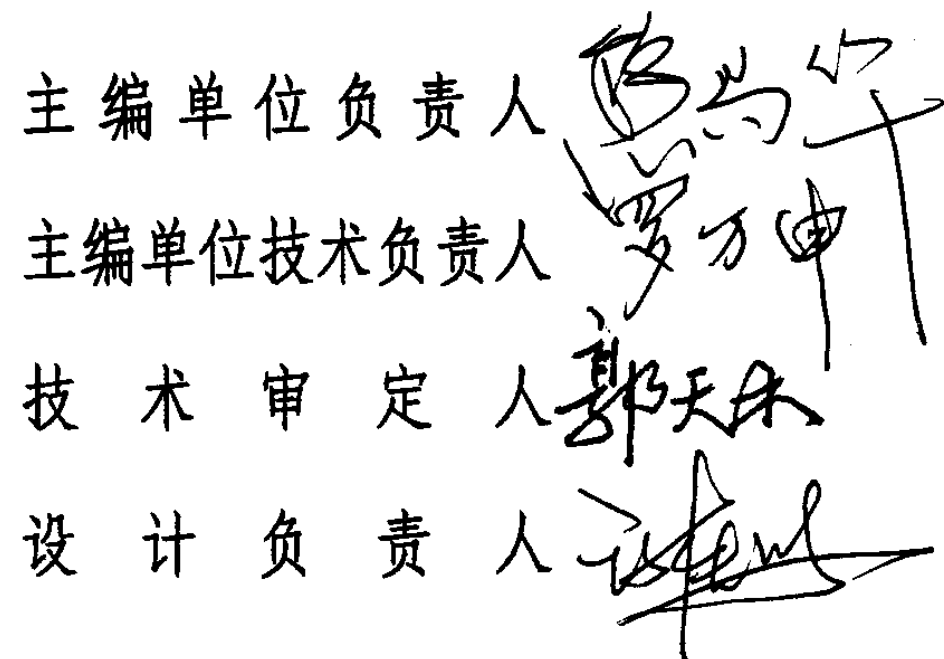 主编单位负责人
主编单位技术负责人 罗万申
技术审定人 郭天木
设计负责人